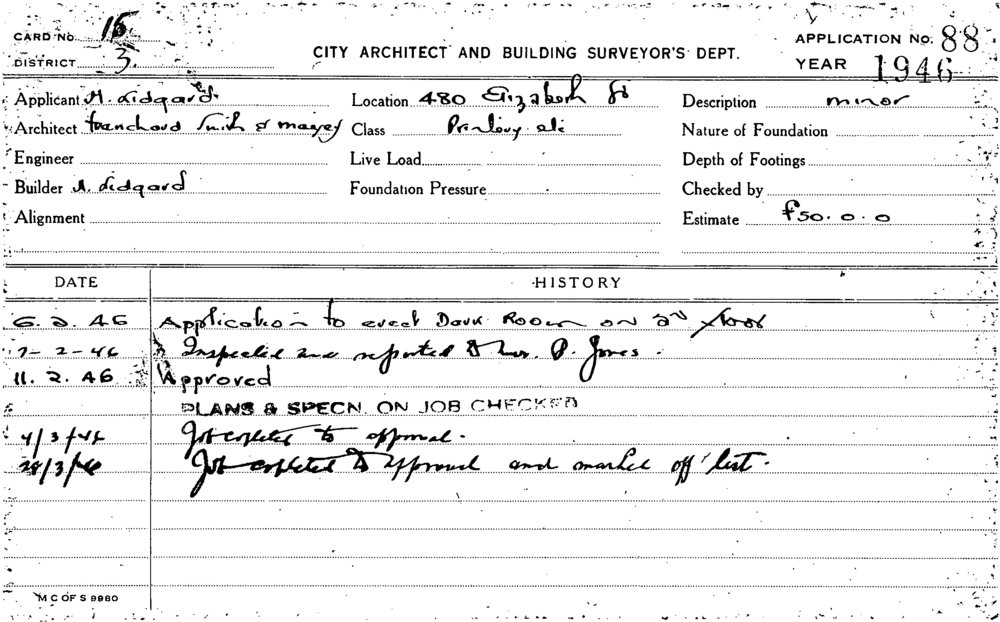 CARD No. 15
DISTRICT 3.
CITY ARCHITECT AND BUILDING SURVEYOR'S DEPT.
APPLICATION No. 88
YEAR 1946
Applicant H. Lidgard. Location 480 Elizabeth St Description minor
Architect Smith & Class Nature of Foundation
Engineer Live Load Depth of Footings
Builder H. Lidgard Foundation Pressure Checked by
Alignment Estimate £50.0.0
DATE HISTORY
6.2.46 Application to erect Dark Room on 2nd floor
7-2-46 Inspected and reported to Mr. P. Jones.
11.2.46 Approved
PLANS & SPECN. ON JOB CHECKED
4/3/46 Job completed to approval.
28/3/46 Job completed to approval and marked off list.
M C OF S 9980